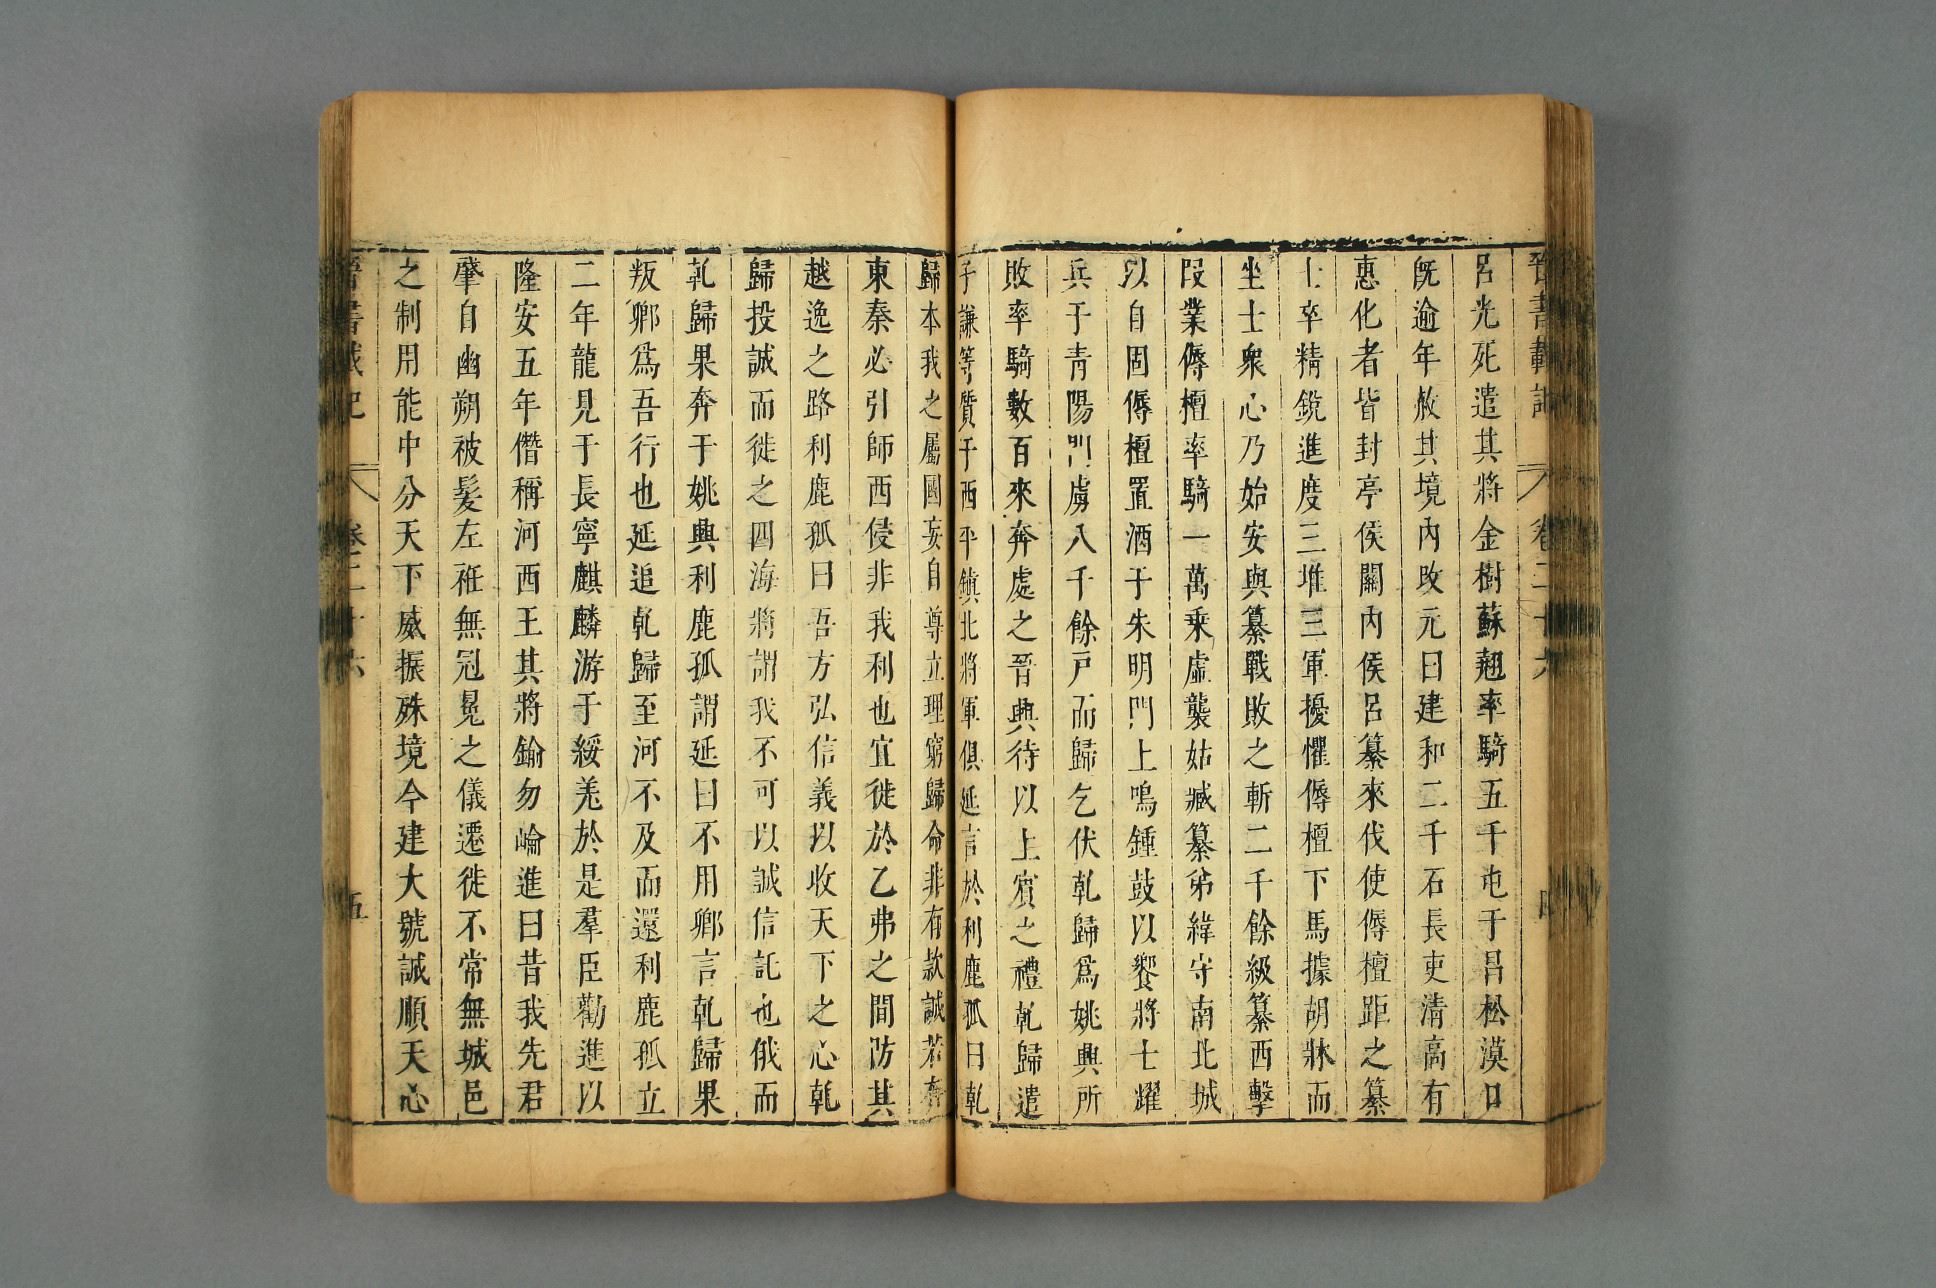 晉書載記 卷二十六
呂光死遣其將金樹蘇翹率騎五千屯于昌松漠口
旣逾年赦其境內改元曰建和二千石長吏清高有
惠化者皆封亭侯關內侯呂纂來伐使傉檀距之纂
士卒精銳進度三堆三軍擾懼傉檀下馬據胡牀而
坐士衆心乃始安與纂戰敗之斬二千餘級纂西擊
段業傉檀率騎一萬乘虛襲姑臧纂弟緯守南北城
以自固傉檀置酒于朱明門上鳴鍾鼓以饗將士耀
兵于青陽門虜八千餘戸而歸乞伏乹歸爲姚興所
敗率騎數百來奔處之晉興待以上賓之禮乹歸遣
子謙等質于西平鎮北將軍俱延言於利鹿孤曰乹
歸本我之屬國妄自尊立理窮歸命非有款誠若奔
東秦必引師西侵非我利也宜徙於乙弗之間防其
越逸之路利鹿孤曰吾方弘信義以收天下之心乹
歸投誠而徙之四海將謂我不可以誠信託也俄而
乹歸果奔于姚興利鹿孤謂延曰不用卿言乹歸果
叛卿爲吾行也延追乹歸至河不及而還利鹿孤立
二年龍見于長寧麒麟游于綏羌於是羣臣勸進以
隆安五年僭稱河西王其將鍮勿崘進曰昔我先君
肇自幽朔被髮左衽無冠冕之儀遷徙不常無城邑
之制用能中分天下威振殊境今建大號誠順天心
晉書載記 卷二十六 五